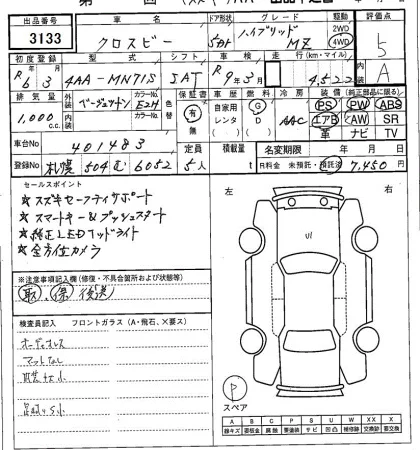 出品番号 車名 ドア形状 グレード 駆動 評価点
3133 クロスビー 5Dr ハイブリッド MZ 2WD 4WD 5
初度登録 型式 シフト 車検 走行 (km・マイル) A
R6・3 4AA-MN71S 5AT R9年3月 4,522
排気量 外装 カラーNo. 色替 保証書 車歴 燃料 冷房 装備 (純正部品に限る)
1,000c.c. E2H 有・無 自家用 レンタ G D AAC PS PW ABS
内装 カラーNo. エアB AW SR
車台No 401483 定員 積載量 革 ナビ TV
登録No 札幌 504 む 6052 5人 t 名変期限 年 月 日
R料金 未預託・預託済 7,450円
セールスポイント
☆スズキセーフティサポート
☆スマートキー&プッシュスタート
☆純正LEDヘッドライト
☆全方位カメラ
※注意事項記入欄(修復・不具合箇所および状態等)
取・保 後送
検査員記入 フロントガラス(A・飛石、×要ス)
オーディオレス
マットなし
左 右
U1
P
スペア
A B C P S U W X XX
線キズ 要板金 腐蝕 要塗装 サビ 凹凸 補修跡 交換跡 要交換